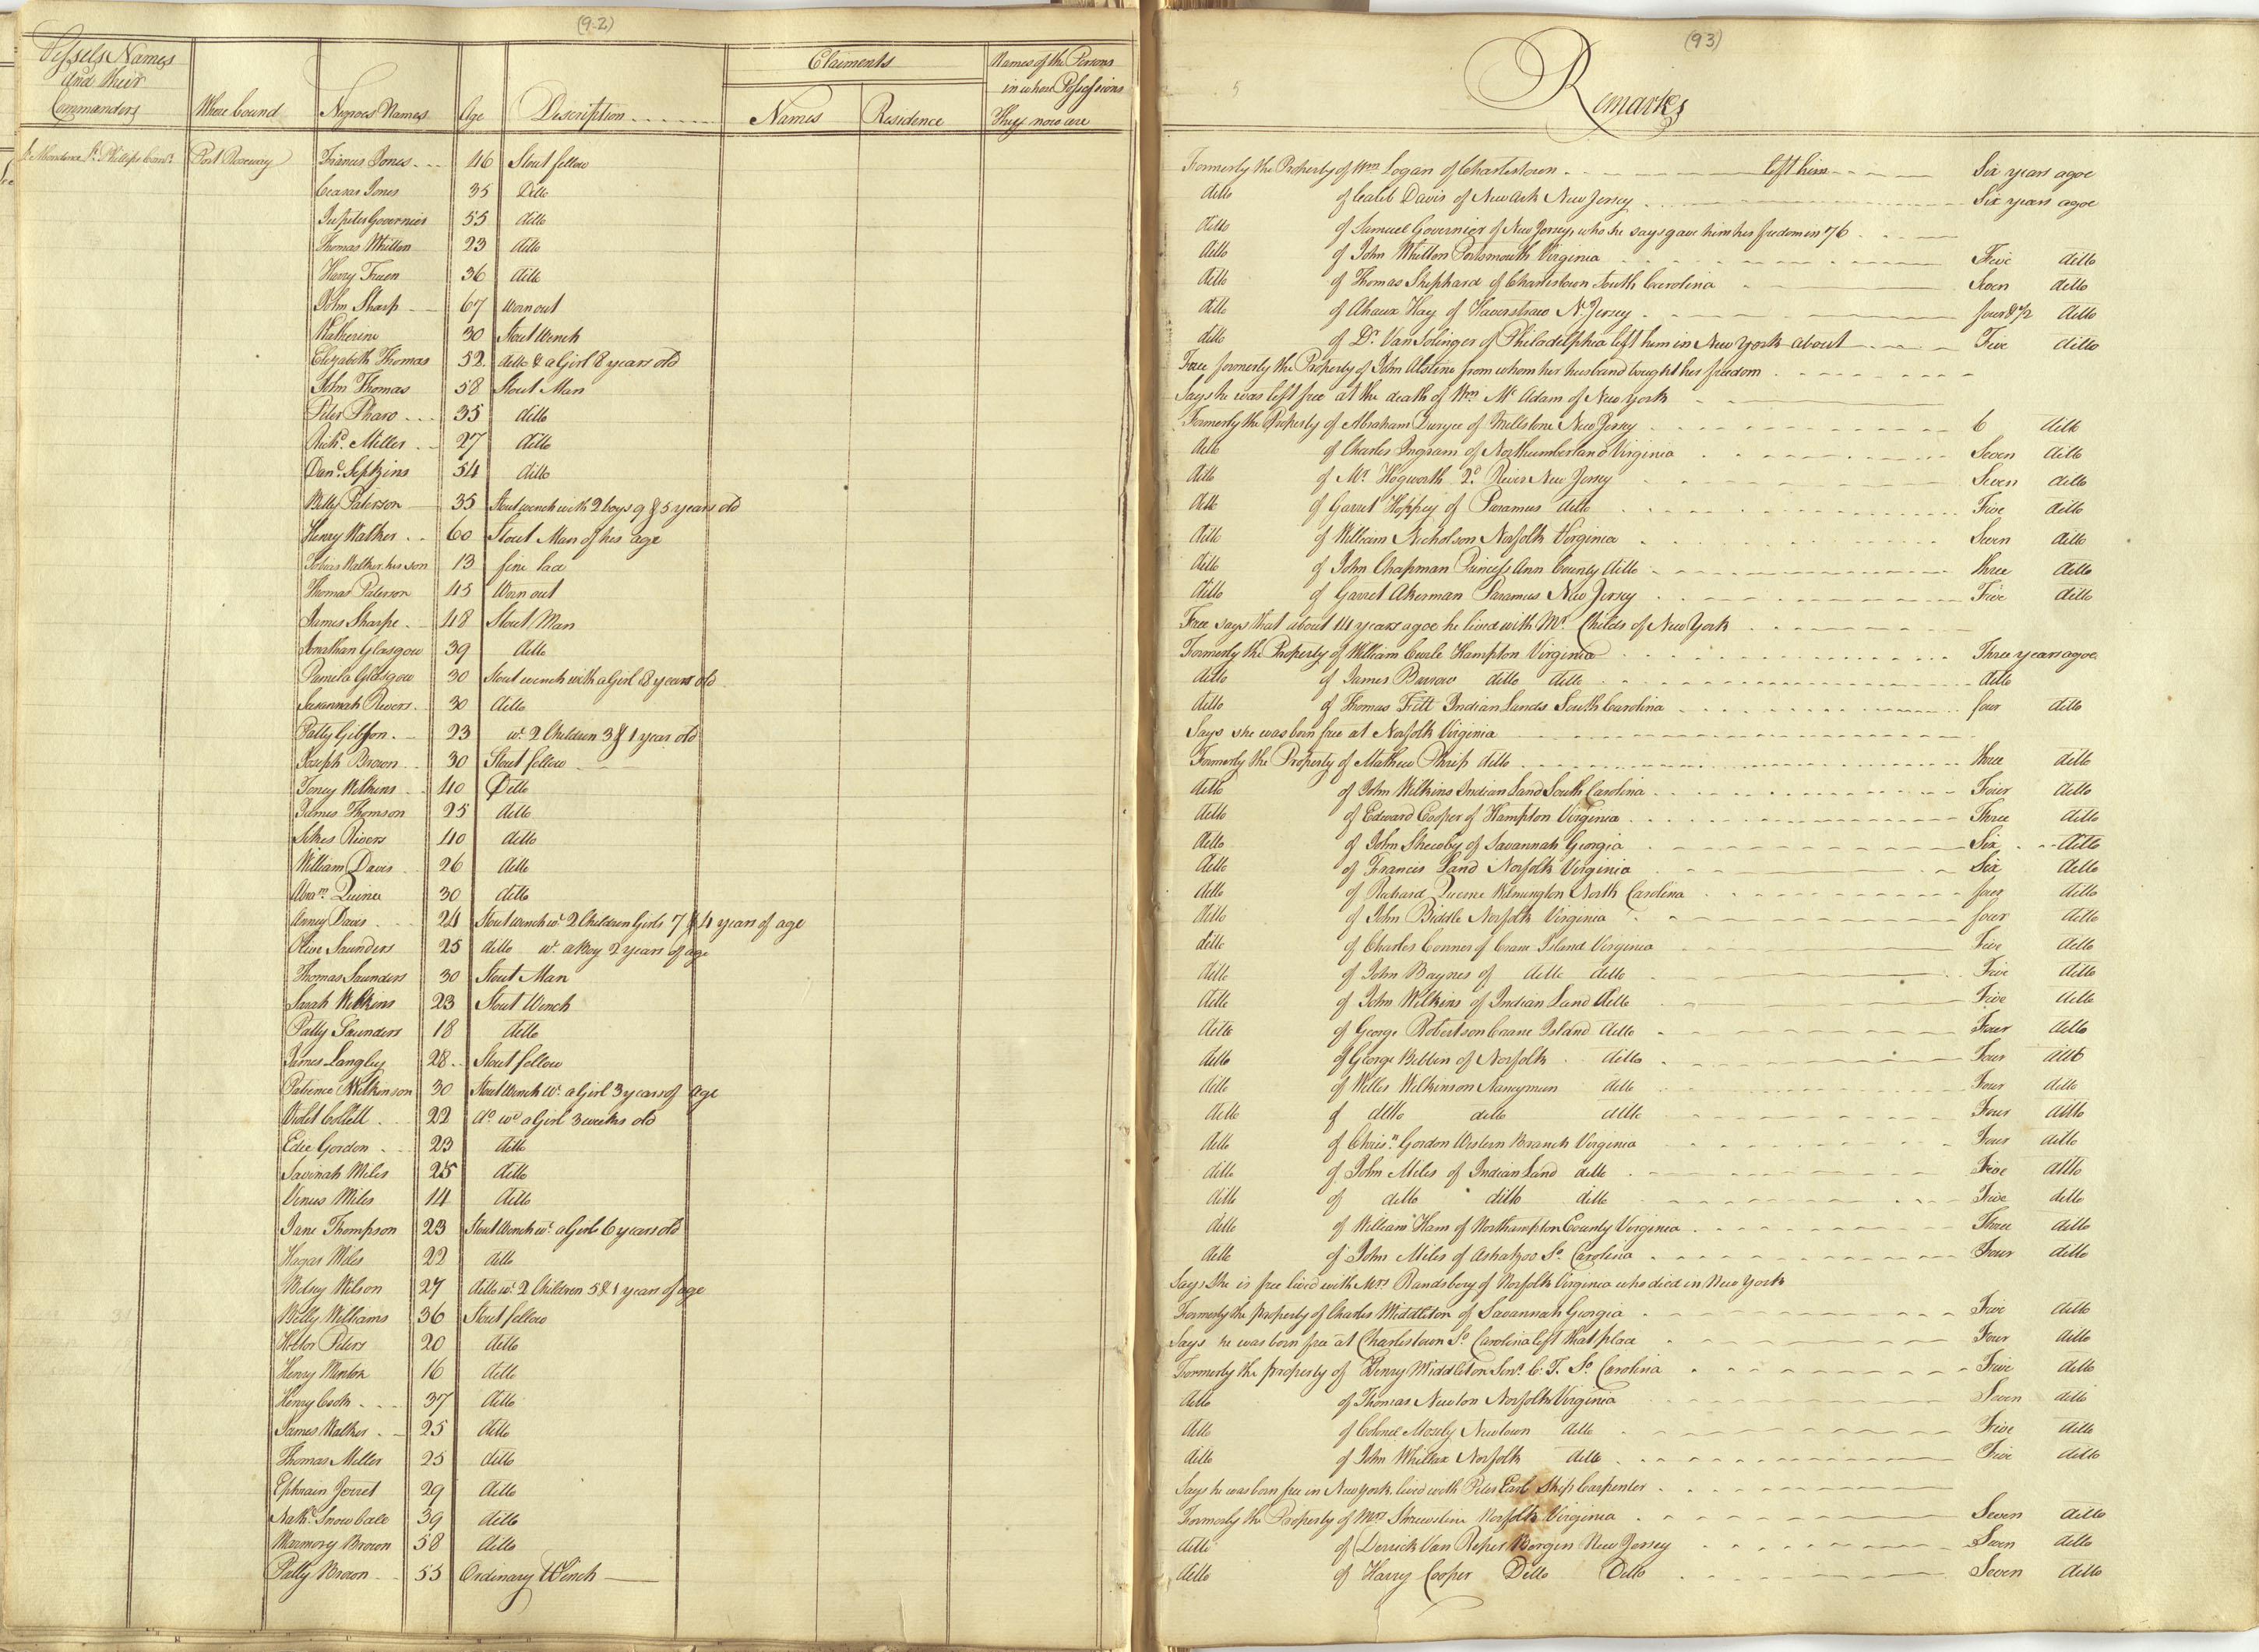 (92)
Vessels Names and their Commanders
Where bound
Negroes Names
Age
Description
Claiments
Names
Residence
Names of the Persons in whose Possessions They now are
(93)
Remarks
L'Abondance Lt. Phillips Comr. Port Roseway Francis Jones 46 Stout fellow Formerly the Property of Wm Logan of Charlestown left him Six years agoe
Ceasar Jones 35 Ditto ditto of Caleb Davis of New Ark New Jersey Six years agoe
Jupiter Governier 55 ditto ditto of Samuel Governier of New Jersey, who he says gave him his freedom in 76
Thomas Whitten 23 ditto ditto of John Whitten Portsmouth Virginia Five ditto
Harry 36 ditto ditto of Thomas Shephard of Charlestown South Carolina Seven ditto
John Sharp 67 Worn out ditto of Hay of Haverstraw N. Jersey four & 1/2 ditto
Katherine 30 Stout Wench ditto of Dr. Van Solinger of Philadelphia left him in New York about Five ditto
Elizabeth Thomas 52 ditto & a Girl 8 years old Free formerly the Property of John Alstine from whom her husband bought her freedom
John Thomas 58 Stout Man Says he was left free at the death of Wm Mc Adam of New York
Peter Pharo 35 ditto Formerly the Property of Abraham Duryee of Millstone New Jersey 6 ditto
Richd. Miller 27 ditto ditto of Charles Ingram of Northumberland Virginia Seven ditto
Danl. Sepkins 54 ditto ditto of Mr Hogworth 2d. River New Jersey Seven ditto
Betty Paterson 35 Stout wench with 2 boys 9 & 5 years old ditto of Garret Hoppey of Paramus ditto Five ditto
Henry Walker 60 Stout Man of his age ditto of William Nicholson Norfolk Virginia Seven ditto
Tobias Walker his son 13 fine lad ditto of John Chapman Princess Ann County ditto three ditto
Thomas Paterson 45 Worn out ditto of Garret Akerman Paramus New Jersey Five ditto
James Sharpe 48 Stout Man Free says that about 14 years agoe he lived with Mr. Childs of New York
Jonathan Glasgow 39 ditto Formerly the Property of William Curle Hampton Virginia Three years agoe
Pamela Glasgow 30 Stout wench with a Girl 8 years old ditto of James Barrow ditto ditto ditto
Savannah Rivers 30 ditto ditto of Thomas Fitt Indian Lands South Carolina four ditto
Patty Gibson 23 wt. 2 Children 3 & 1 year old Says she was born free at Norfolk Virginia
Joseph Brown 30 Stout fellow Formerly the Property of Mathew Phrip ditto three ditto
Toney Wilkins 40 Ditto ditto of John Wilkins Indian Land South Carolina Four ditto
James Thomson 25 ditto ditto of Edward Cooper of Hampton Virginia Three ditto
Sikes Rivers 40 ditto ditto of John of Savannah Georgia Six ditto
William Davis 26 ditto ditto of Francis Land Norfolk Virginia Six ditto
Abrm. Quince 30 ditto ditto of Richard Quince Wilmington North Carolina four ditto
Anney Davis 24 Stout Wench wt. 2 Children Girls 7 & 4 years of age ditto of John Biddle Norfolk Virginia four ditto
Olive Saunders 25 ditto wt. a Boy 2 years of age ditto of Charles Conner of Crane Island Virginia Five ditto
Thomas Saunders 30 Stout Man ditto of John Baynes of ditto ditto Five ditto
Sarah Wilkins 23 Stout Wench ditto of John Wilkins of Indian Land ditto Five ditto
Patty Saunders 18 ditto ditto of George Robertson Crane Island ditto Four ditto
James Langley 28 Stout fellow ditto of George of Norfolk ditto Four ditto
Patience Wilkinson 30 Stout Wench wt. a Girl 3 years of age ditto of Willis Wilkinson Nancymun ditto Four ditto
Violet Collett 22 do. wt. a Girl 3 weeks old ditto of ditto ditto ditto Four ditto
Edie Gordon 23 ditto ditto of Chrisn. Gordon Western Branch Virginia Four ditto
Savinah Miles 25 ditto ditto of John Miles of Indian Land ditto Five ditto
Venus Miles 14 ditto ditto of ditto ditto ditto Five ditto
Jane Thompson 23 Stout Wench wt. a Girl 6 years old ditto of William Ham of Northampton County Virginia Three ditto
Hagar Miles 22 ditto ditto of John Miles of Ashapoo So. Carolina Four ditto
Betsey Wilson 27 ditto wt. 2 Children 5 & 1 years of age Says She is free lived with Mrs Randsbery of Norfolk Virginia who died in New York
Billy Williams 36 Stout fellow Formerly the property of Charles Middleton of Savannah Georgia Five ditto
Hector Peters 20 ditto Says he was born free at Charlestown So. Carolina left that place Four ditto
Henry Minton 16 ditto Formerly the property of Henry Middleton Senr. C. T. So. Carolina Five ditto
Henry Cook 37 ditto ditto of Thomas Newton Norfolk Virginia Seven ditto
James Walker 25 ditto ditto of Colonel Mosely Newtown ditto Five ditto
Thomas Miller 25 ditto ditto of John Norfolk ditto Five ditto
Ephraim 29 ditto Says he was born free in New York lived with Peter Earl Ship Carpenter
Nathl. Snowball 39 ditto Formerly the Property of Mrs Shrewstin Norfolk Virginia Seven ditto
Marmory Brown 58 ditto ditto of Derrick Van Reper Bergen New Jersey Seven ditto
Patty Brown 55 Ordinary Wench ditto of Harry Cooper Ditto Ditto Seven ditto